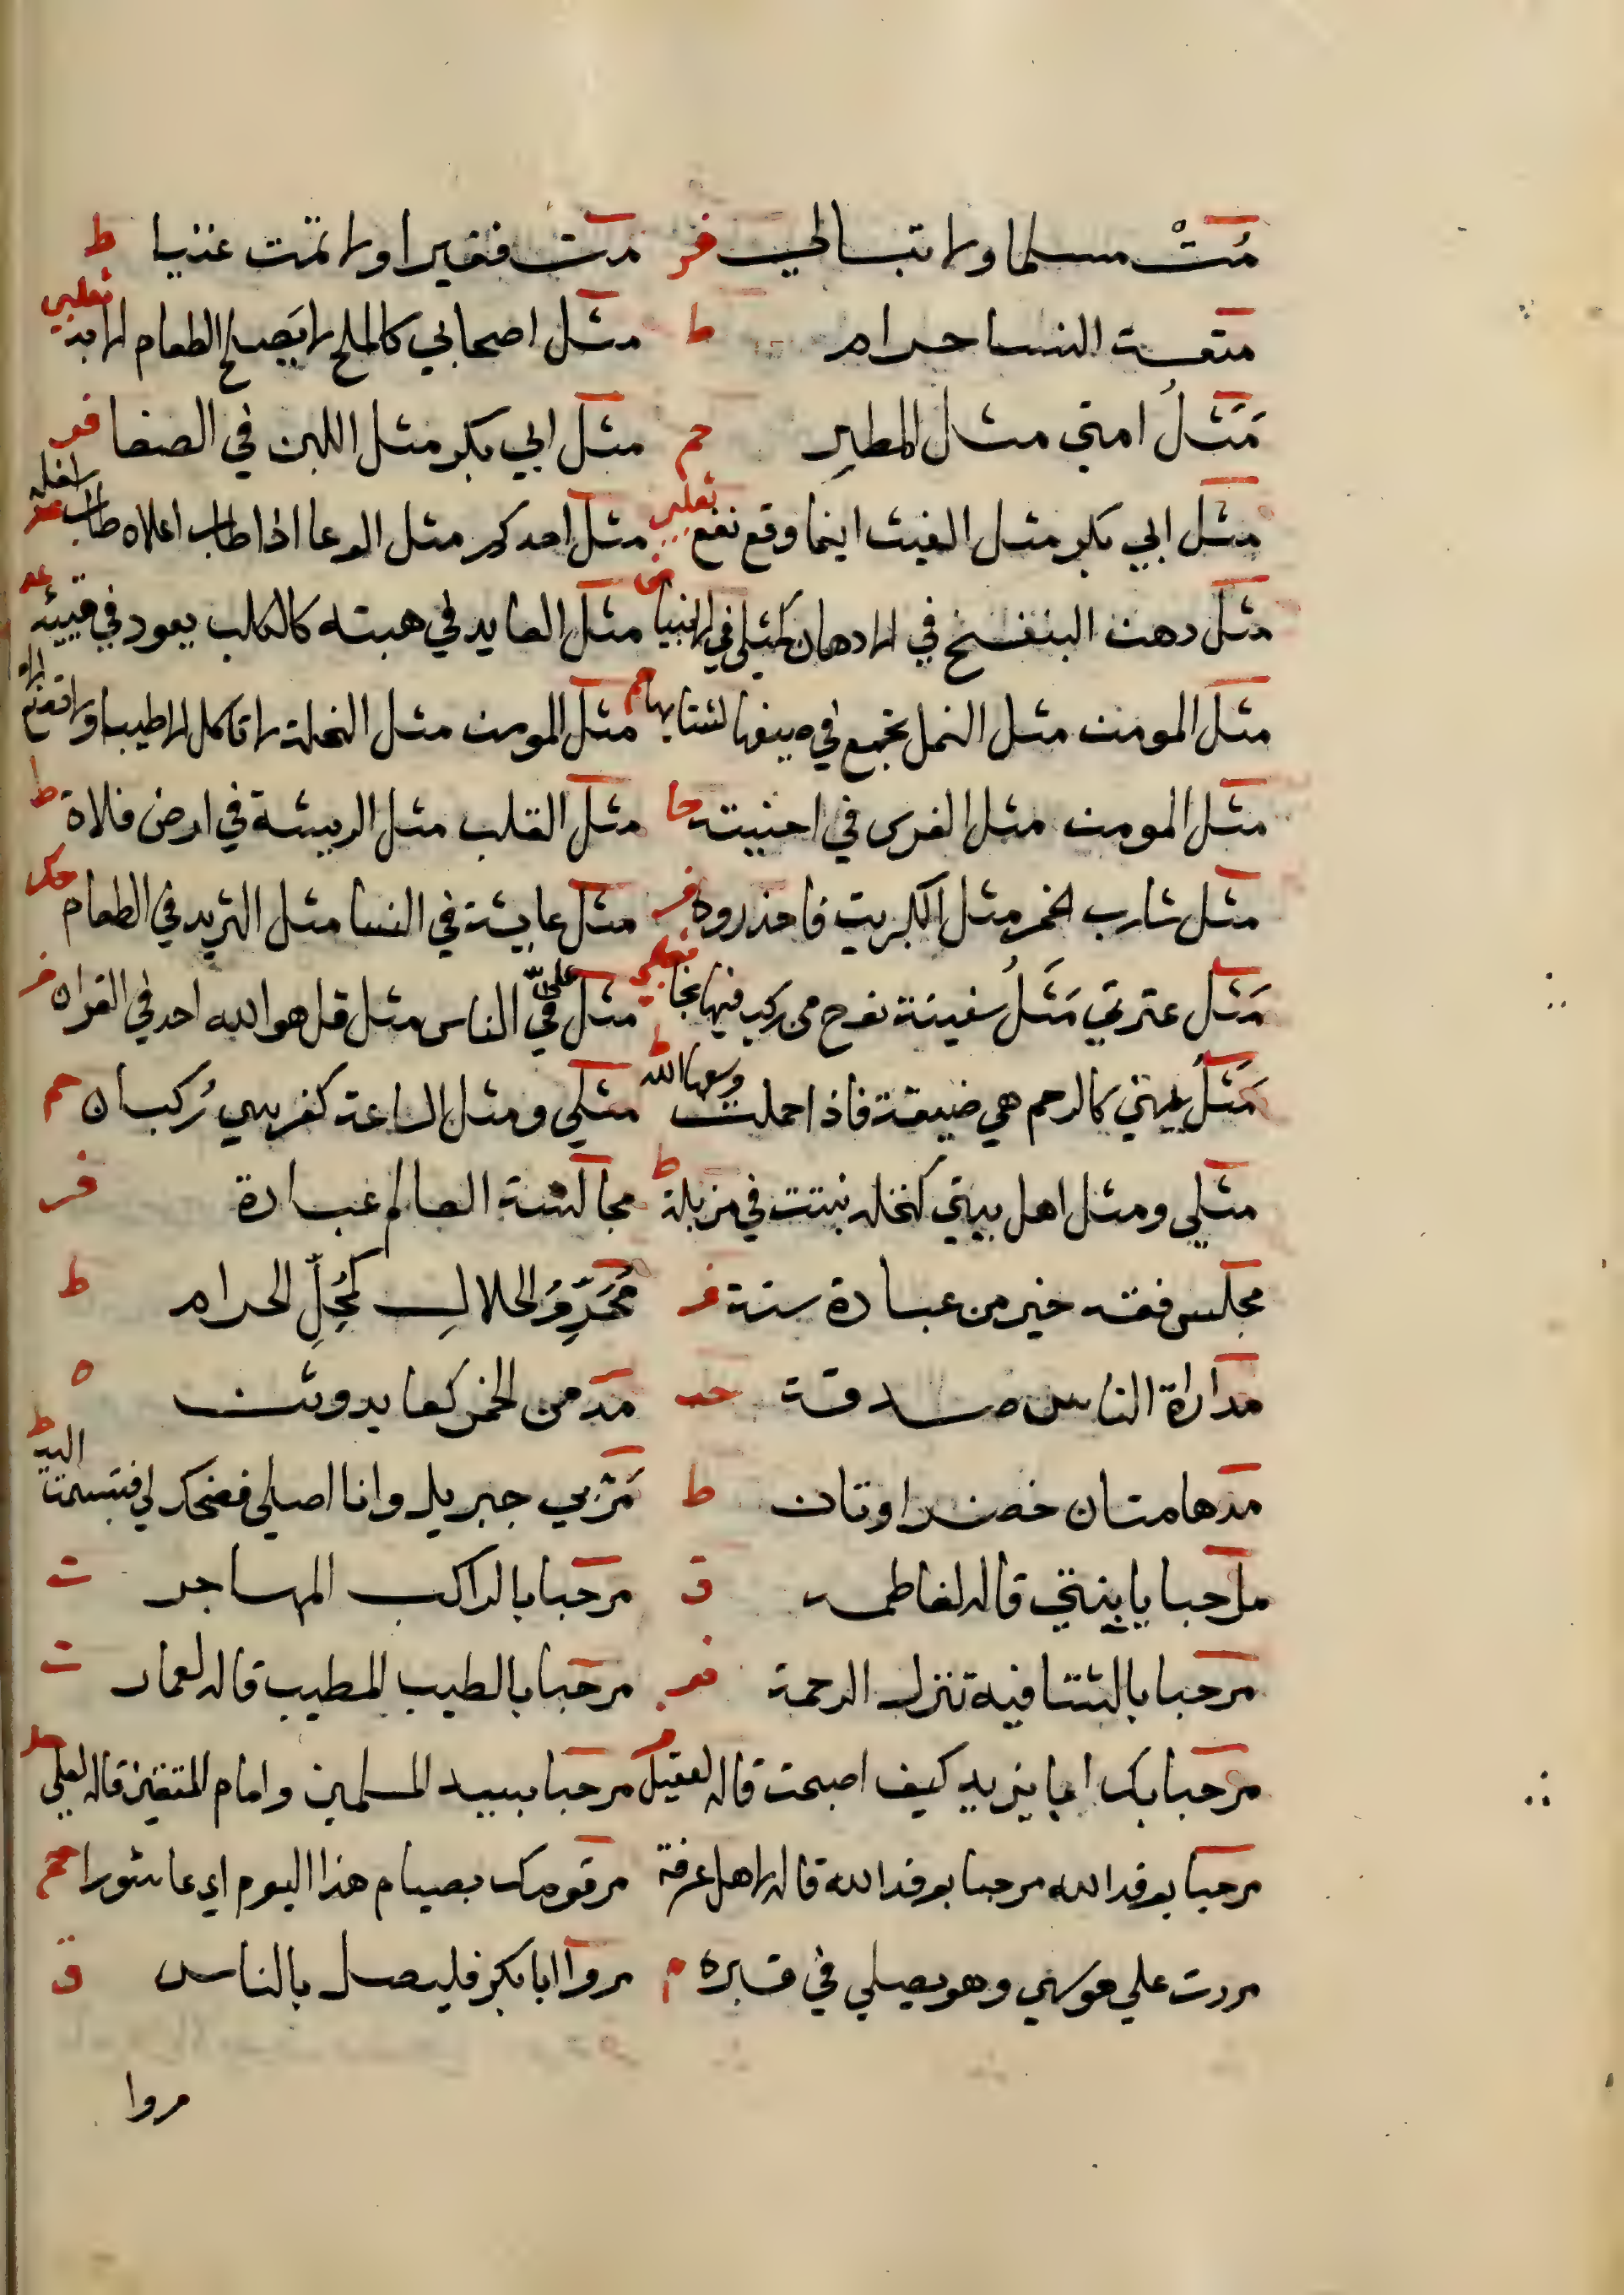 مُتْ مسلما ولا تبالي فر مت فقيرا ولا تمت غنيا ط
متعة النسا حرام ط مثل اصحابي كالملح لا يَصلح الطعام الا به ثعلبي
مَثَلُ امتي مثل المطر حم مثل ابي بكر مثل اللبن في الصفا فر
مثل ابي بكر مثل الغيث اينما وقع نفع ثعلبي مثل احدكم مثل الوعا اذا طاب اعلاه طاب اسفله
مثل دهن البنفسج في الادهان كمثلي في الانبيا مثل العايد في هبته كالكلب يعود في قيئه
مثل المومن مثل النمل تجمع في صيفها لشتايها مثل المومن مثل النحلة لا تاكل الا طيبا ولا تضع الاه
مثل المومن مثل الفرس في اخيته حا مثل القلب مثل الريشة في ارض فلاة ط
مثل شارب الخمر مثل الكبريت فاحذروه فر مثل عايشة في النسا مثل الثريد في الطعام حك
مَثَل عترتي مَثَلُ سفينة نوح من ركب فيها نجا ثعلبي مثل علي في الناس مثل قل هو الله احد في القران فر
مَثَلُ مني كالرحم هي ضيقة فاذا حملت وسعها الله ط مثلي ومثل الساعة كفرسي رُكبان حم
مثلي ومثل اهل بيتي كنخلة نبتت في مزبلة ط مجالسة العالم عبادة فر
مجلس فقه خير من عبادة سنة فر مُحَرِّمُ الحلالِ كمُحِلِّ الحرام ط
مداراة الناس صدقة حب مدمن الخمر كعابد وثن ه
مدهامتان خضراوتان ط مَرَّ بي جبريل وانا اصلي فضحك لي فتبسمت اليه ط
مرحبا يا بنتي قاله لفاطمه ق مرحبا بالراكب المهاجر ت
مرحبا بالشتا فيه تنزل الرحمة فر مرحبا بالطيب المطيب قاله لعمار ت
مرحبا بك ابا يزيد كيف اصبحت قاله لعقيل مرحبا بسيد المسلمين وامام المتقين قاله لعلي حل
مرحبا بوفد الله مرحبا بوفد الله قاله لاهل عرفة مر قومك بصيام هذا اليوم اي عاشورا حم
مررت على موسى وهو يصلي في قبره م مروا ابا بكر فليصل بالناس ق
مروا